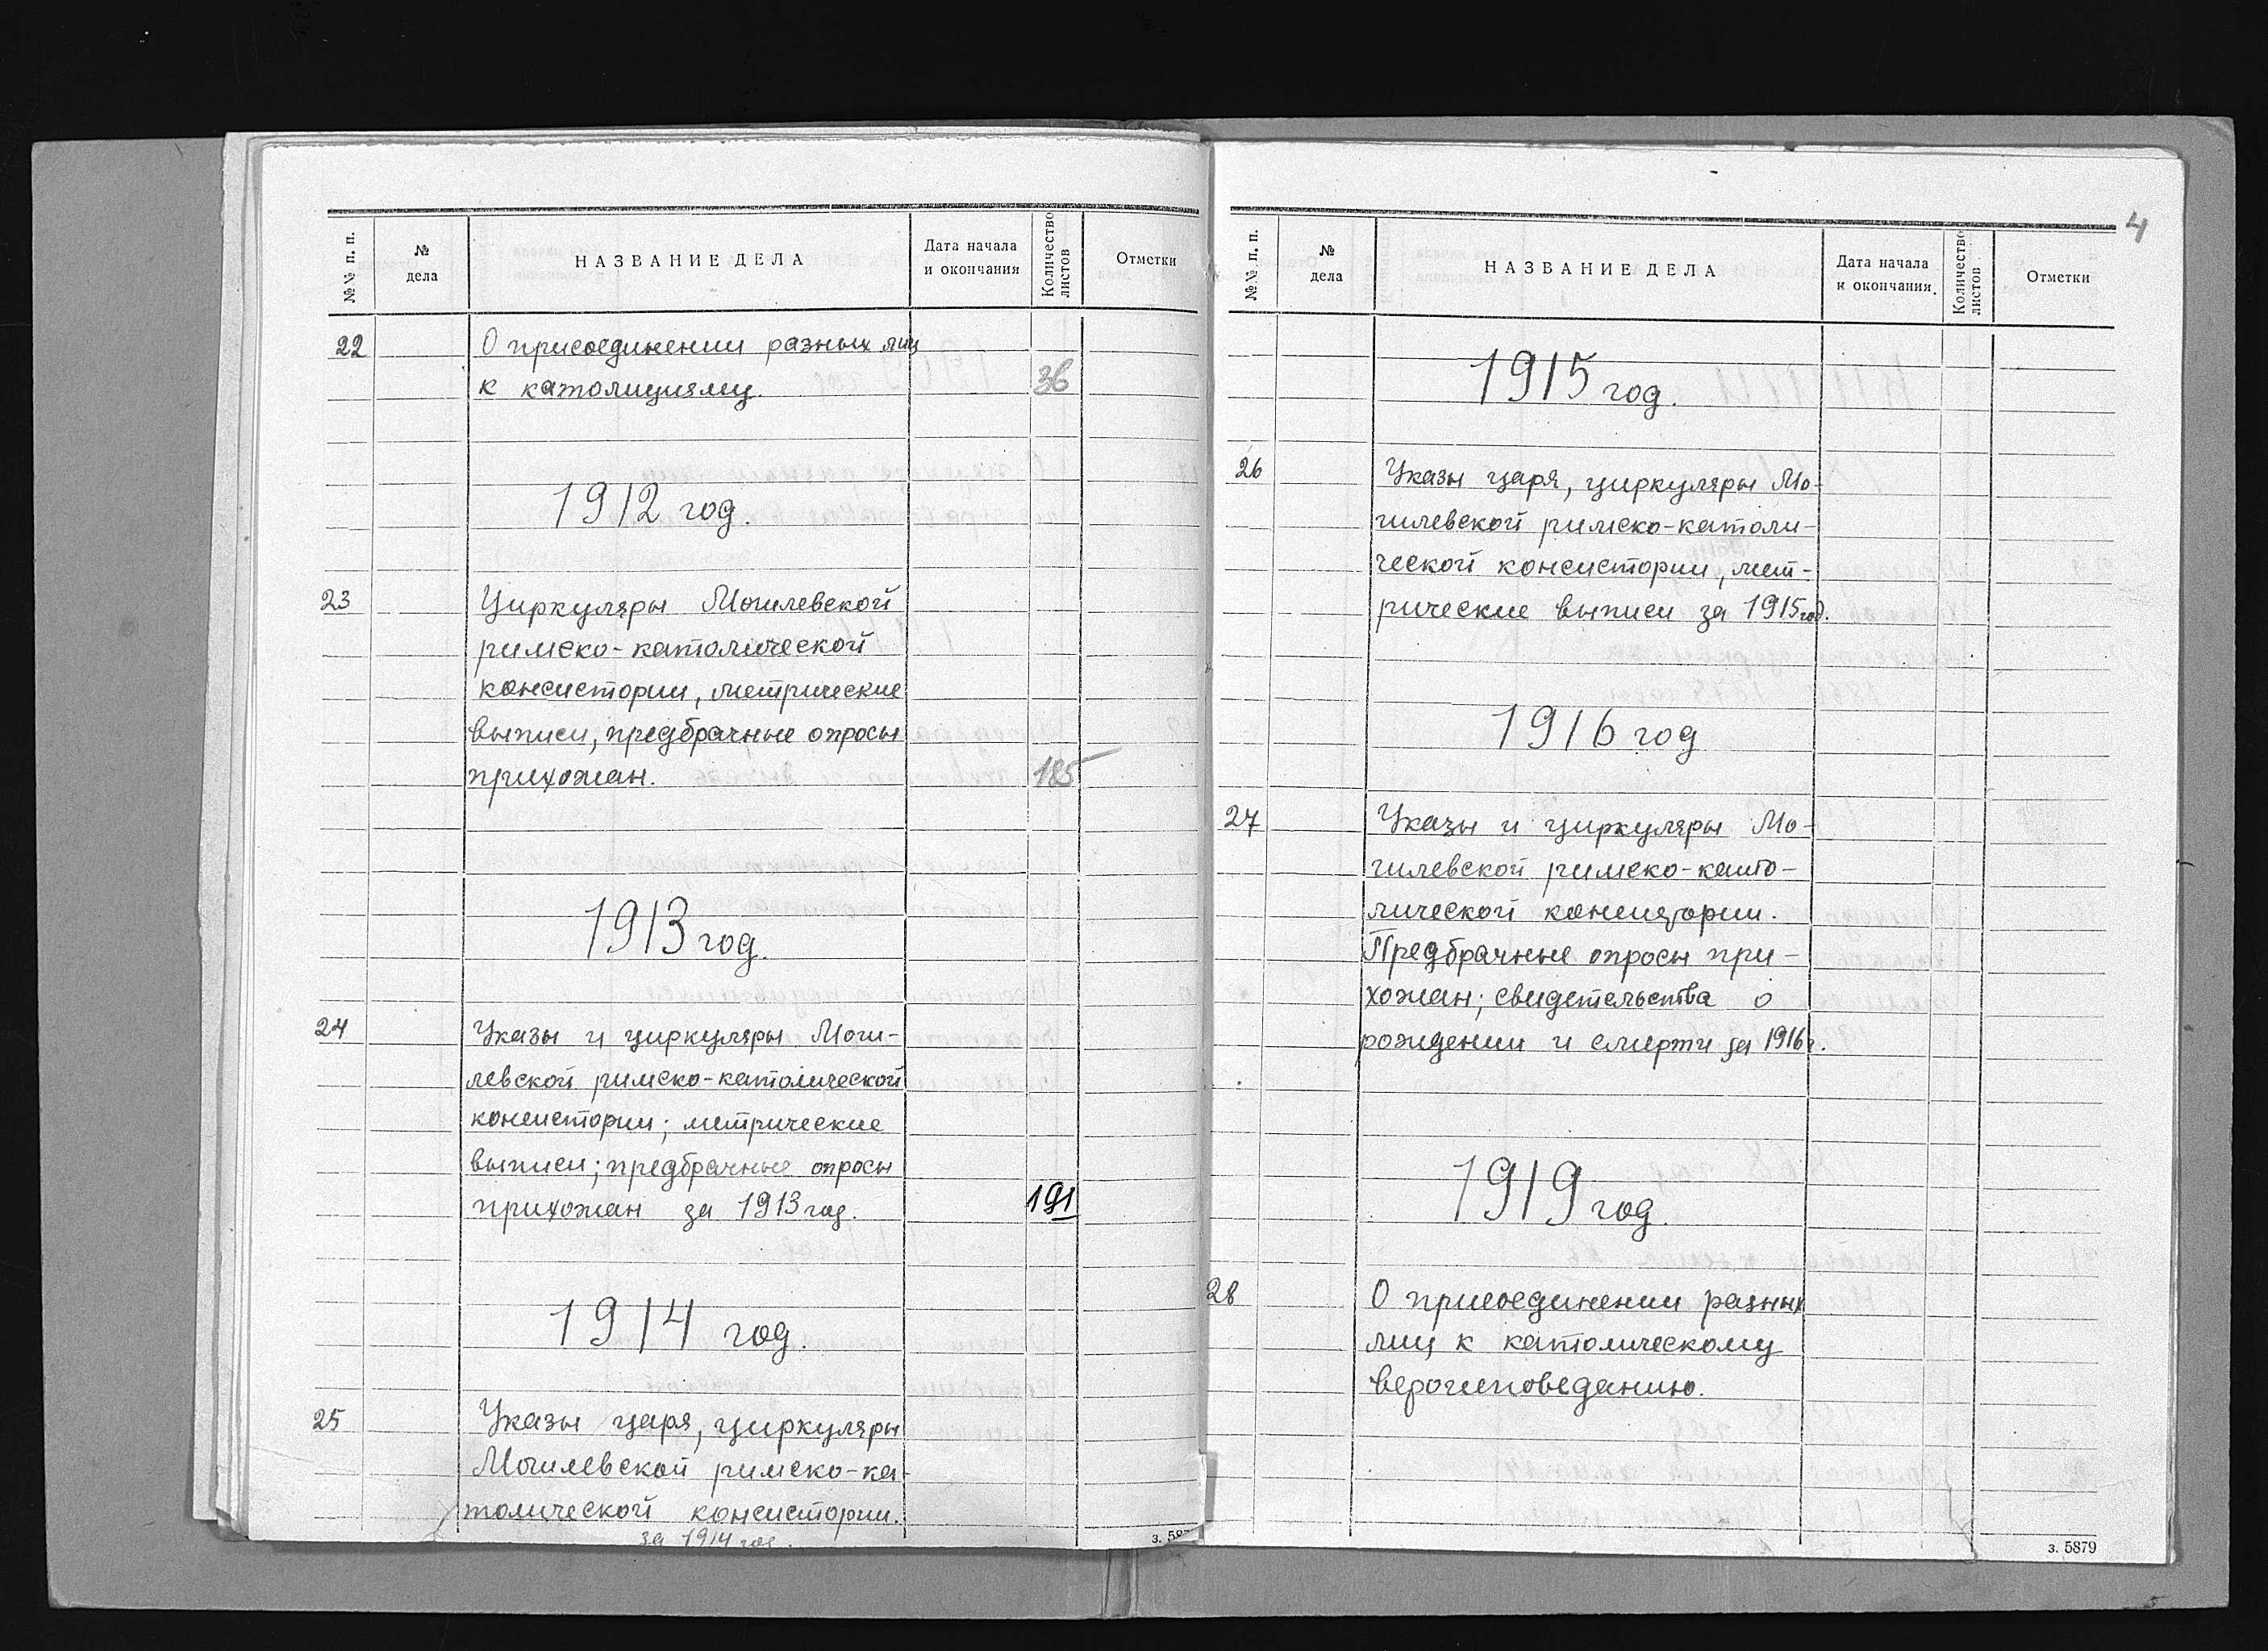 №№ п. п. № дела НАЗВАНИЕ ДЕЛА Дата начала и окончания Количество листов Отметки
22 О присоединении разных лиц
к католицизму. 36
1912 год.
23 Циркуляры Могилевской
римско-католической
консистории, метрические
выписи, предбрачные опросы
прихожан. 185
1913 год.
24 Указы и циркуляры Моги-
левской римско-католической
консистории; метрические
выписи; предбрачные опросы
прихожан за 1913 год. 191
1914 год.
25 Указы царя, циркуляры
Могилевской римско-ка-
толической консистории.
за 1914 год.
з. 587
4
№№ п. п. № дела НАЗВАНИЕ ДЕЛА Дата начала и окончания. Количество листов Отметки
1915 год.
26 Указы царя, циркуляры Мо-
гилевской римско-католи-
ческой консистории, мет-
рические выписи за 1915 год.
1916 год
27 Указы и циркуляры Мо-
гилевской римско-като-
лической консистории.
Предбрачные опросы при-
хожан; свидетельства о
рождении и смерти за 1916 г.
1919 год.
28 О присоединении разных
лиц к католическому
вероисповеданию.
з. 5879